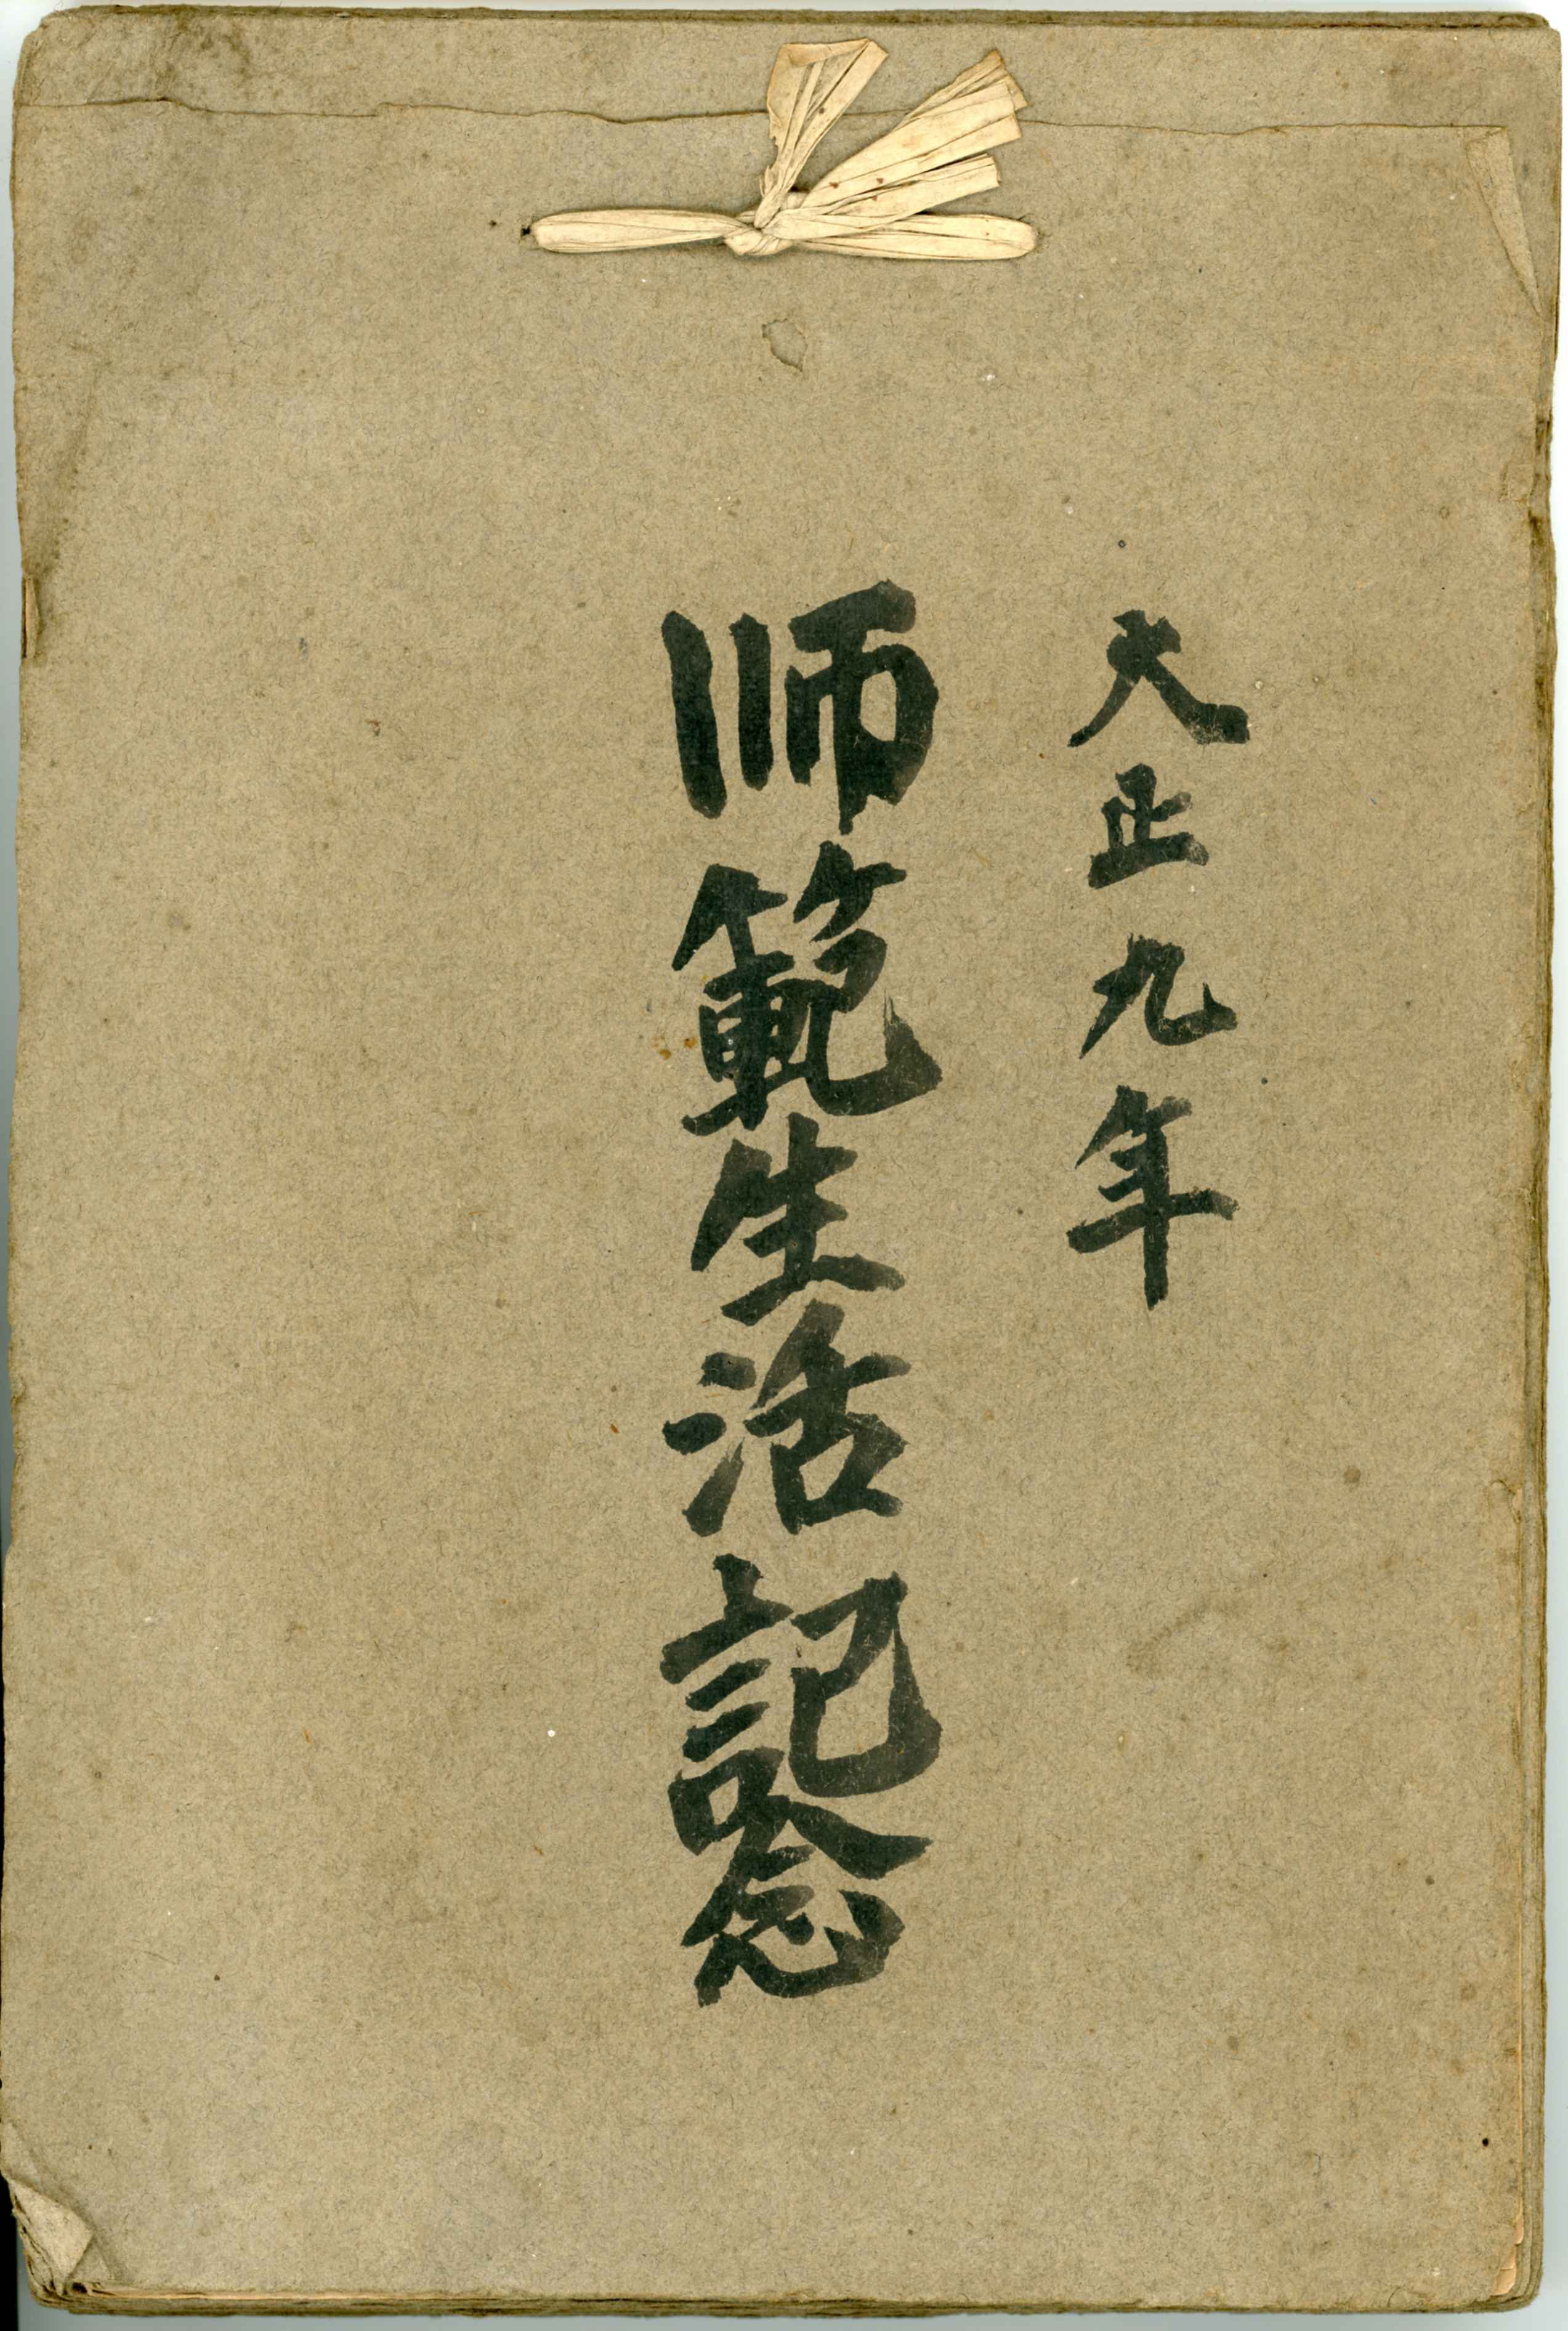 大正九年
师範生活記念